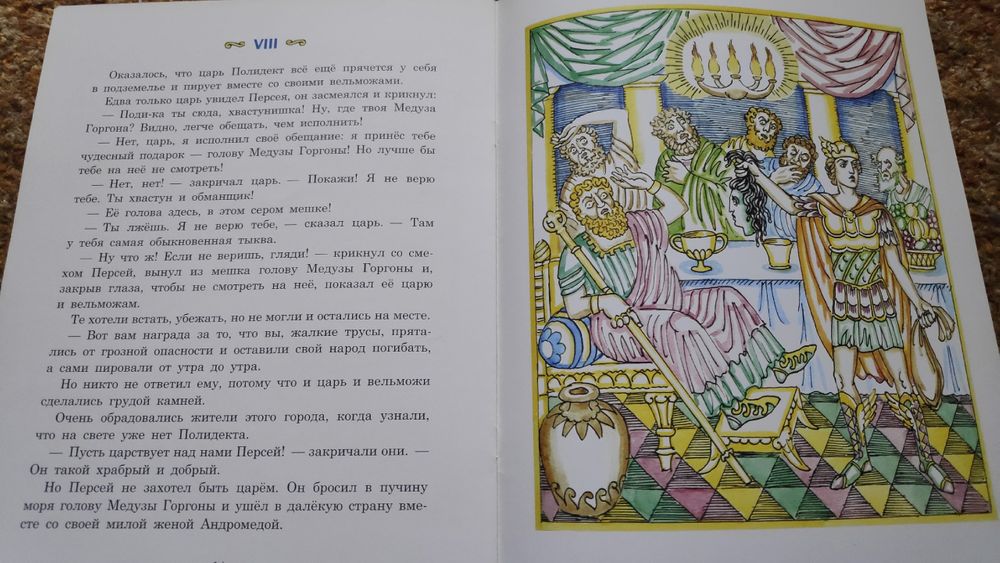 VIII
Оказалось, что царь Полидект всё ещё прячется у себя
в подземелье и пирует вместе со своими вельможами.
Едва только царь увидел Персея, он засмеялся и крикнул:
— Поди-ка ты сюда, хвастунишка! Ну, где твоя Медуза
Горгона? Видно, легче обещать, чем исполнить!
— Нет, царь, я исполнил своё обещание: я принёс тебе
чудесный подарок — голову Медузы Горгоны! Но лучше бы
тебе на неё не смотреть!
— Нет, нет! — закричал царь. — Покажи! Я не верю
тебе. Ты хвастун и обманщик!
— Её голова здесь, в этом сером мешке!
— Ты лжёшь. Я не верю тебе, — сказал царь. — Там
у тебя самая обыкновенная тыква.
— Ну что ж! Если не веришь, гляди! — крикнул со сме-
хом Персей, вынул из мешка голову Медузы Горгоны и,
закрыв глаза, чтобы не смотреть на неё, показал её царю
и вельможам.
Те хотели встать, убежать, но не могли и остались на месте.
— Вот вам награда за то, что вы, жалкие трусы, прята-
лись от грозной опасности и оставили свой народ погибать,
а сами пировали от утра до утра.
Но никто не ответил ему, потому что и царь и вельможи
сделались грудой камней.
Очень обрадовались жители этого города, когда узнали,
что на свете уже нет Полидекта.
— Пусть царствует над нами Персей! — закричали они. —
Он такой храбрый и добрый.
Но Персей не захотел быть царём. Он бросил в пучину
моря голову Медузы Горгоны и ушёл в далёкую страну вме-
сте со своей милой женой Андромедой.